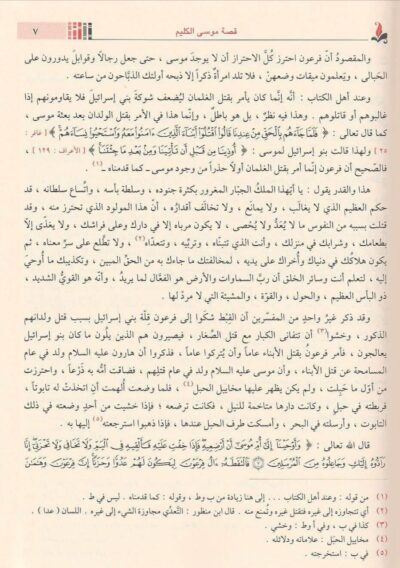 قصة موسى الكليم
٧
والمقصودُ أن فرعون احترز كُلَّ الاحتراز أن لا يوجدَ موسى ، حتى جعل رجالاً وقوابلَ يدورون على
الحَبالى ، ويَعلمون ميقات وضعهنَّ ، فلا تلد امرأة ذكراً إلا ذبحه أولئك الذبَّاحون من ساعته .
وعند أهل الكتاب : أنَّه إنَّما كان يأمر بقتل الغلمان ليُضعف شوكةَ بني إسرائيل فلا يقاومونهم إذا
غالبوهم أو قاتلوهم . وهذا فيه نظرٌ ، بل هو باطل ، وإنَّما هذا في الأمر بقتل الولدان بعد بعثة موسى ،
كما قال تعالى : ﴿ فَلَمَّا جَاءَهُم بِالْحَقِّ مِنْ عِندِنَا قَالُوا اقْتُلُوا أَبْنَاءَ الَّذِينَ ءَامَنُوا مَعَهُ وَاسْتَحْيُوا نِسَاءَهُمْ ﴾ [ غافر :
٢٥ ] ولهذا قالت بنو إسرائيل لموسى : ﴿ أُوذِينَا مِن قَبْلِ أَن تَأْتِيَنَا وَمِنْ بَعْدِ مَا جِئْتَنَا ﴾ [ الأعراف : ١٢٩ ] .
فالصَّحيح أن فرعون إنَّما أمر بقتل الغلمان أولاً حذراً من وجود موسى ـ كما قدمناه ـ(١) .
هذا والقدر يقول : يا أيّهذا الملكُ الجبَّار المغرور بكثرة جنوده ، وسلطة بأسه ، واتِّساع سلطانه ، قد
حكم العظيم الذي لا يغالَب ، ولا يمانَع ، ولا تخالَف أقدارُه ، أنَّ هذا المولود الذي تحترز منه ، وقد
قتلت بسببه من النفوس ما لا يُعَدُّ ولا يُحْصى ، لا يكون مرباه إلا في دارك وعلى فراشك ، ولا يغذَى إلاّ
بطعامك ، وشرابك في منزلك ، وأنت الذي تتبنَّاه ، وتربِّيه ، وتتعدَّاه(٢) ، ولا تطَّلع على سرِّ معناه ، ثم
يكون هلاكُك في دنياك وأُخراك على يديه ، لمخالفتك ما جاءك به من الحقِّ المبين ، وتكذيبك ما أُوحيَ
إليه ، لتعلم أنت وسائر الخلق أن ربَّ السماوات والأرض هو الفعَّال لما يريدُ ، وأنَّه هو القويُّ الشديد ،
ذو البأس العظيم ، والحول ، والقوّة ، والمشيئة التي لا مردَّ لها .
وقد ذكر غيرُ واحدٍ من المفسّرين أن القِبْط شكَوا إلى فرعون قِلَّة بني إسرائيل بسبب قتل ولدانهم
الذكور ، وخشوا(٣) أن تتفانى الكبار مع قتل الصِّغار ، فيصيرون هم الذين يلُون ما كان بنو إسرائيل
يعالجون ، فأمر فرعون بقتل الأبناء عاماً وأن يُتركوا عاماً ، فذكروا أن هارون عليه السلام ولد في عام
المسامحة عن قتل الأبناء ، وأن موسى عليه السلام ولد في عام قتلِهم ، فضاقت أمُّه به ذَرْعاً ، واحترزت
من أوّل ما حَبِلت ، ولم يكن يظهر عليها مخاييل الحبل(٤) ، فلما وضعت أُلهمت أن اتخذتْ له تابوتاً ،
فربطته في حبلٍ ، وكانت دارها متاخمة للنيل ، فكانت ترضعه ؛ فإذا خشيت من أحدٍ وضعته في ذلك
التابوت ، وأرسلته في البحر ، وأمسكت طرف الحبل عندها ، فإذا ذهبوا استرجعته(٥) إليها به .
قال الله تعالى : ﴿ وَأَوْحَيْنَا إِلَىٰ أُمِّ مُوسَىٰ أَنْ أَرْضِعِيهِ فَإِذَا خِفْتِ عَلَيْهِ فَأَلْقِيهِ فِي الْيَمِّ وَلَا تَخَافِي وَلَا تَحْزَنِي إِنَّا
رَادُّوهُ إِلَيْكِ وَجَاعِلُوهُ مِنَ الْمُرْسَلِينَ ۝ فَالْتَقَطَهُ ءَالُ فِرْعَوْنَ لِيَكُونَ لَهُمْ عَدُوًّا وَحَزَنًا إِنَّ فِرْعَوْنَ وَهَامَانَ
(١) من قوله : وعند أهل الكتاب . . . إلى هنا زيادة من ب وط ، وقوله : كما قدمناه . ليس في ط .
(٢) أي تتجاوزه إلى غيره فتقتل غيره وتُمنع منه . قال ابن منظور : التعدِّي مجاوزة الشيء إلى غيره . اللسان ( عدا ) .
(٣) كذا في ب ، وفي أ وط : وخشي .
(٤) مخاييل الحبَل : علاماته ودلائله .
(٥) في ب : استخرجته .